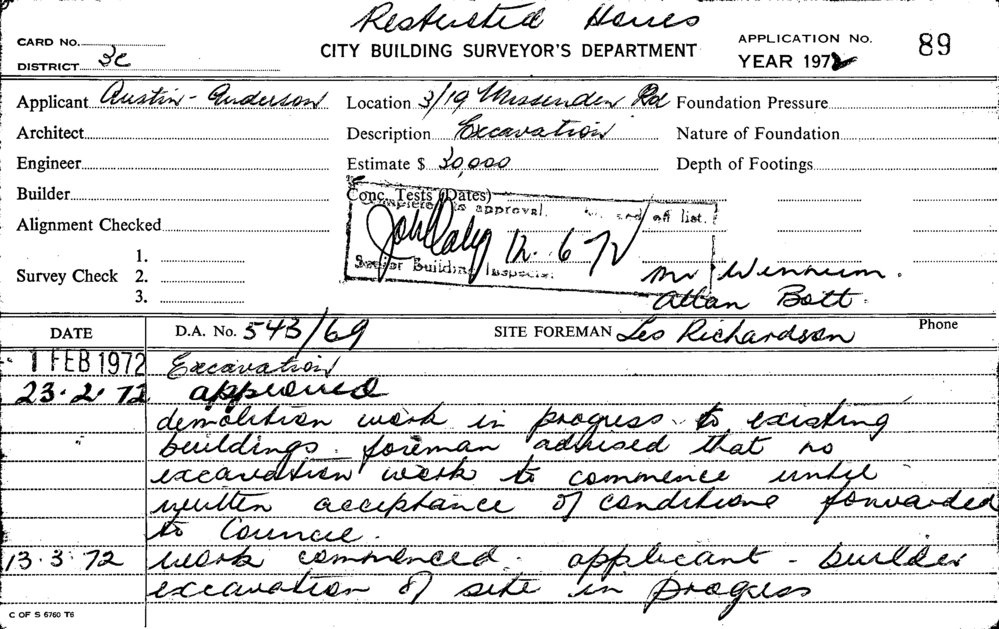 Restricted Hours
CARD No.
CITY BUILDING SURVEYOR'S DEPARTMENT
APPLICATION No. 89
DISTRICT 3c
YEAR 1972
Applicant Austin-Anderson Location 3/19 Missenden Rd Foundation Pressure
Architect Description Excavation Nature of Foundation
Engineer Estimate $ 30,000 Depth of Footings
Builder Conc. Tests (Dates)
Completed to approval. and off list.
Alignment Checked
John Daly 12.6.72
Senior Building Inspector
1.
Survey Check 2.
3.
Mr Winnum.
Allan Bott.
DATE D.A. No. 543/69 SITE FOREMAN Les Richardson Phone
1 FEB 1972 Excavation
23.2.72 approved
demolition work in progress to existing
buildings foreman advised that no
excavation work to commence until
written acceptance of conditions forwarded
to Council.
13.3.72 work commenced. applicant - builder
excavation of site in progress
C OF S 6760 T6